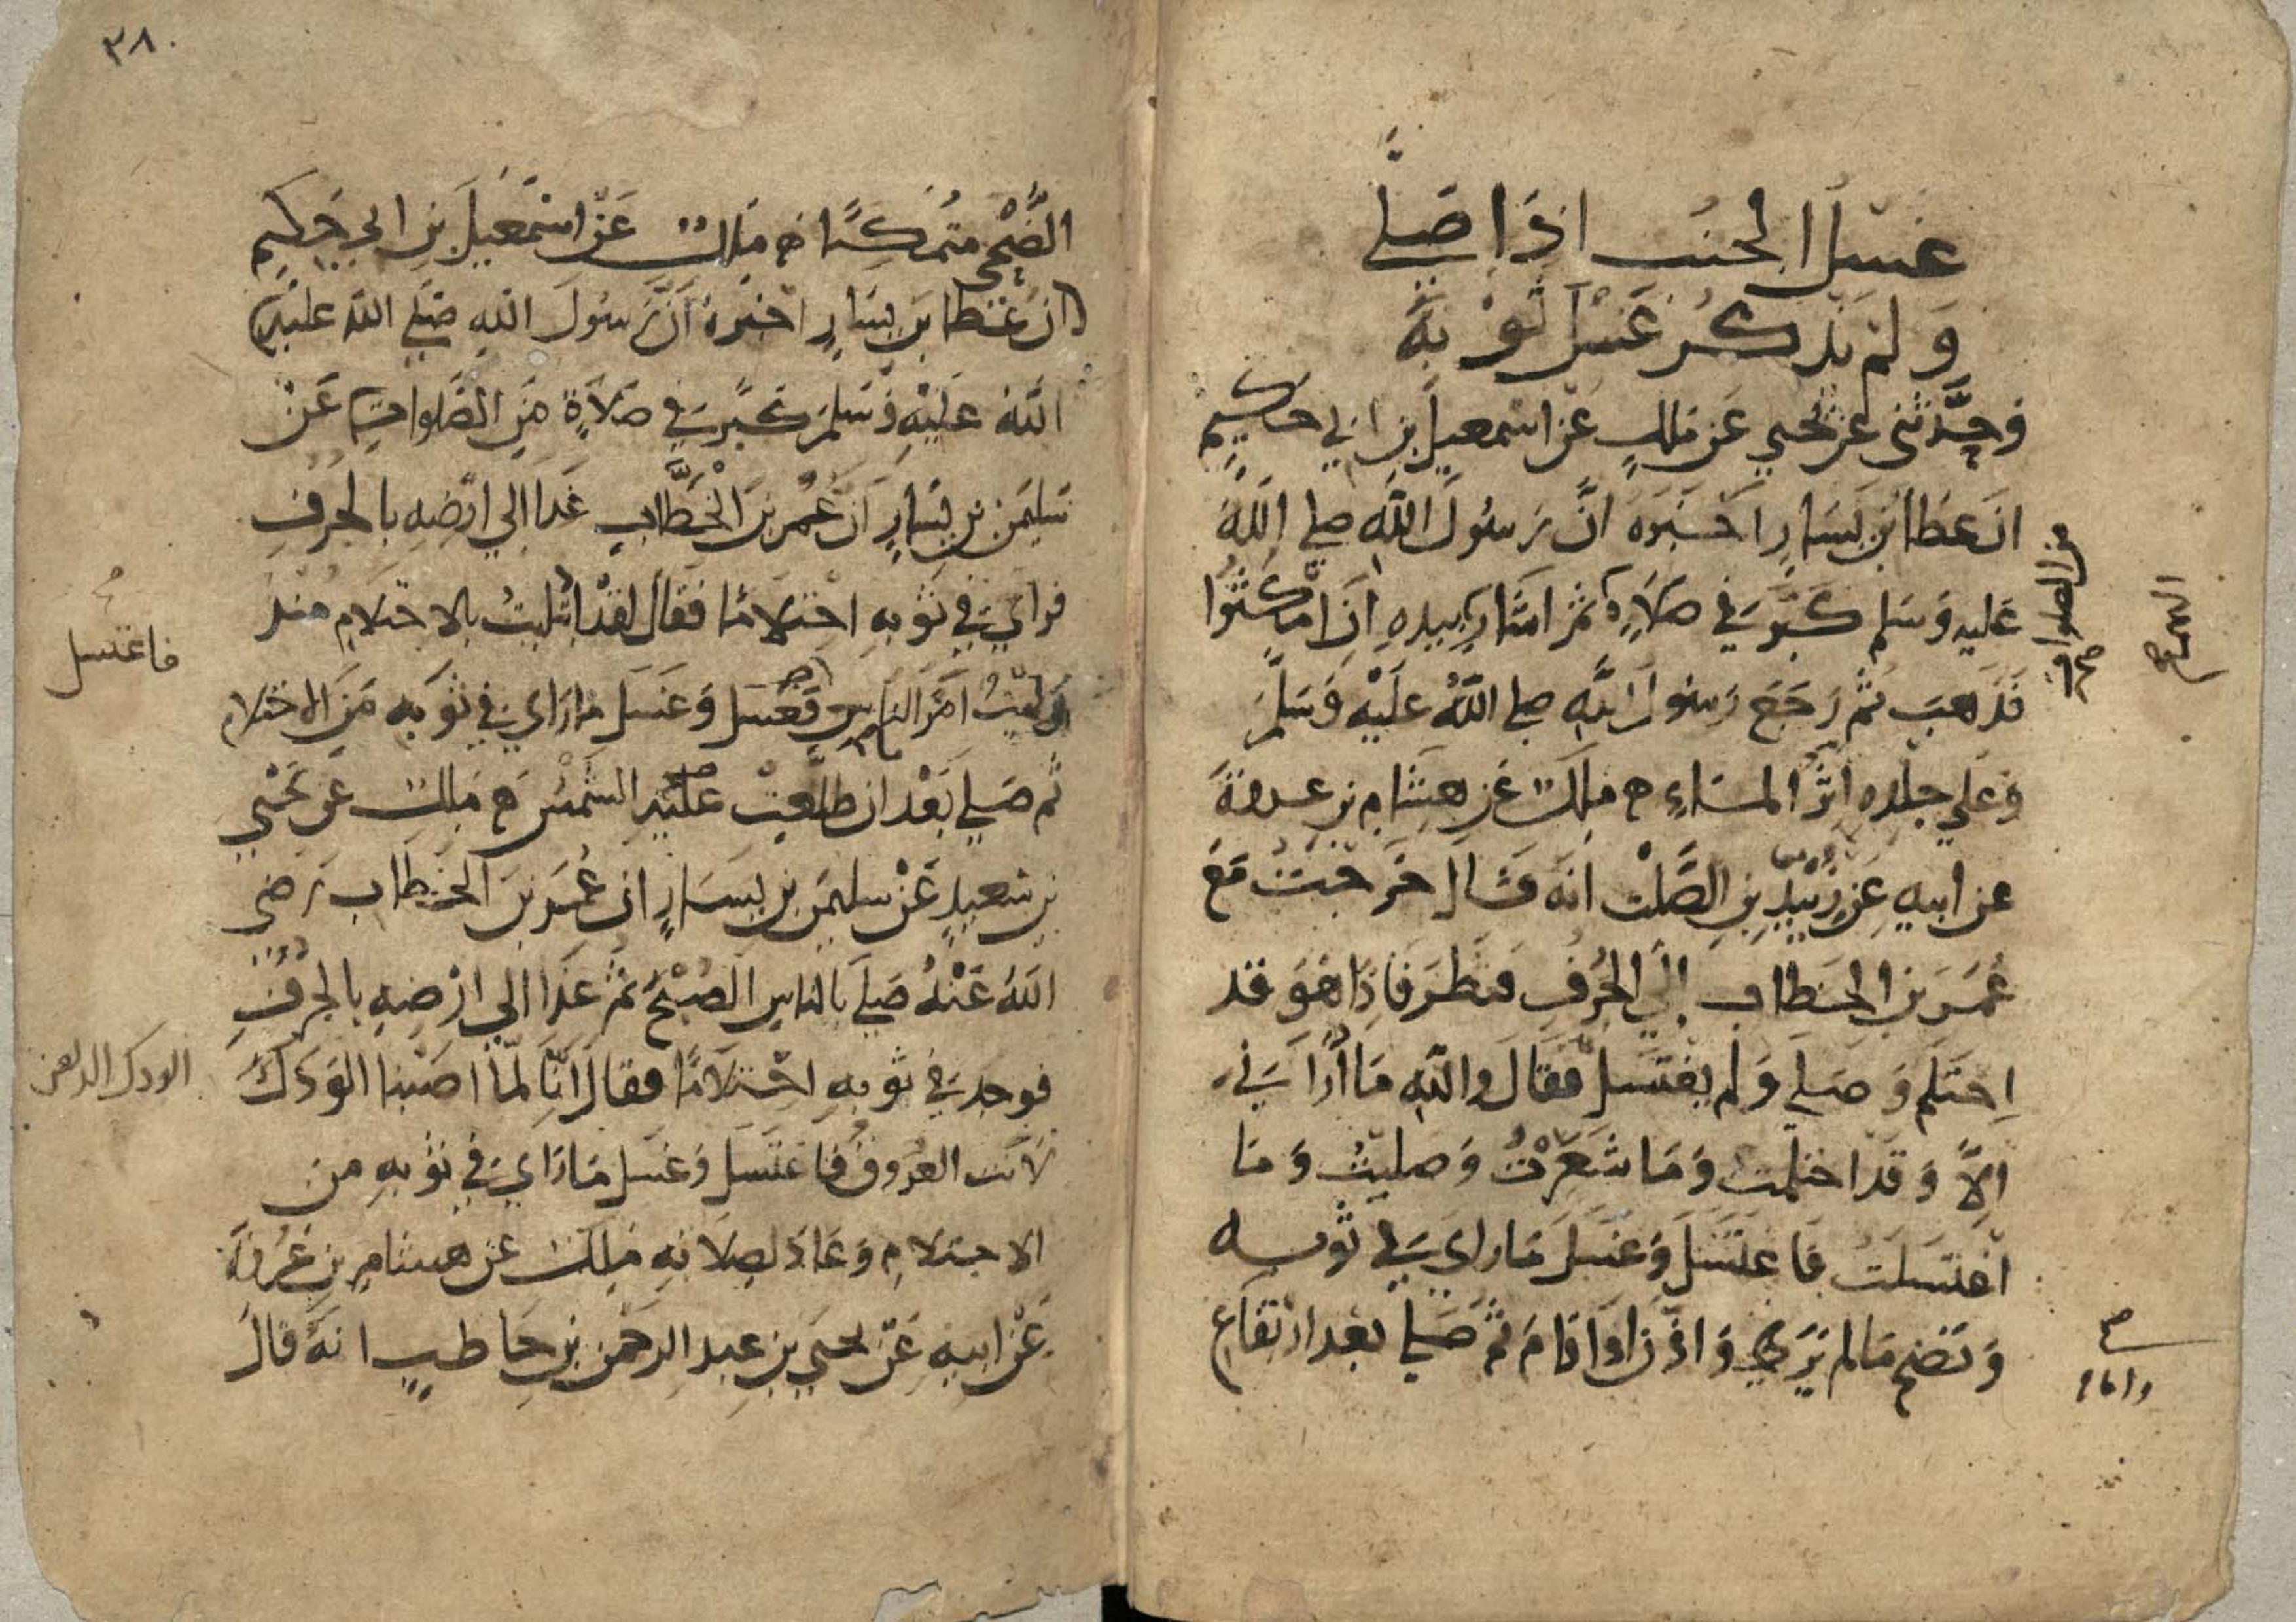 غسل الجنب اذا صلى
ولم يذكر غسل ثوبه
وحدثني عن يحيي عن ملك عن اسمعيل بن ابي حكيم
ان عطا بن يسار اخبره ان رسول الله صلى الله
عليه وسلم كبر في صلاة ثم اشار بيده ان امكثوا
من الصلوات صح
فذهب ثم رجع رسول الله صلى الله عليه وسلم
وعلي جلده اثر الماء ح ملك عن هشام بن عروة
عن ابيه عن زييد بن الصلت انه قال خرجت مع
عمر بن الخطاب الي الجرف فنظر فاذا هو قد
احتلم وصلي ولم يغتسل فقال والله ما اراني
الا وقد احتلمت وما شعرت وصليت وما
اغتسلت فاغتسل وغسل ما راي في ثوبه
ونضح ما لم يري واذن او اقام ثم صلي بعد ارتفاع
واقام
٣٨٠
الضحى متمكنا ح ملك عن اسمعيل بن ابي حكيم
ان عطا بن يسار اخبره ان رسول الله صلي الله عليه
الله عليه وسلم كبر في صلاة من الصلوات عن
سليمن بن يسار ان عمر بن الخطاب غدا الي ارضه بالجرف
فراي في ثوبه احتلاما فقال لقد ابتليت بالاحتلام منذ
وليت امر الناس فغسل وغسل ما راي في ثوبه من الاحتلام
فاغتسل
ثم صلي بعد ان طلعت عليه الشمس ح ملك عن يحيي
بن سعيد عن سليمن بن يسار ان عمر بن الخطاب رضي
الله عنه صلي بالناس الصبح ثم غدا الي ارضه بالجرف
فوجد في ثوبه احتلاما فقال انا لما اصبنا الودك
الودك الدهن
لانت العروق فاغتسل وغسل ما راي في ثوبه من
الاحتلام وعاد لصلاته ملك عن هشام بن عروة
عن ابيه عن يحيي بن عبد الرحمن بن حاطب انه قال